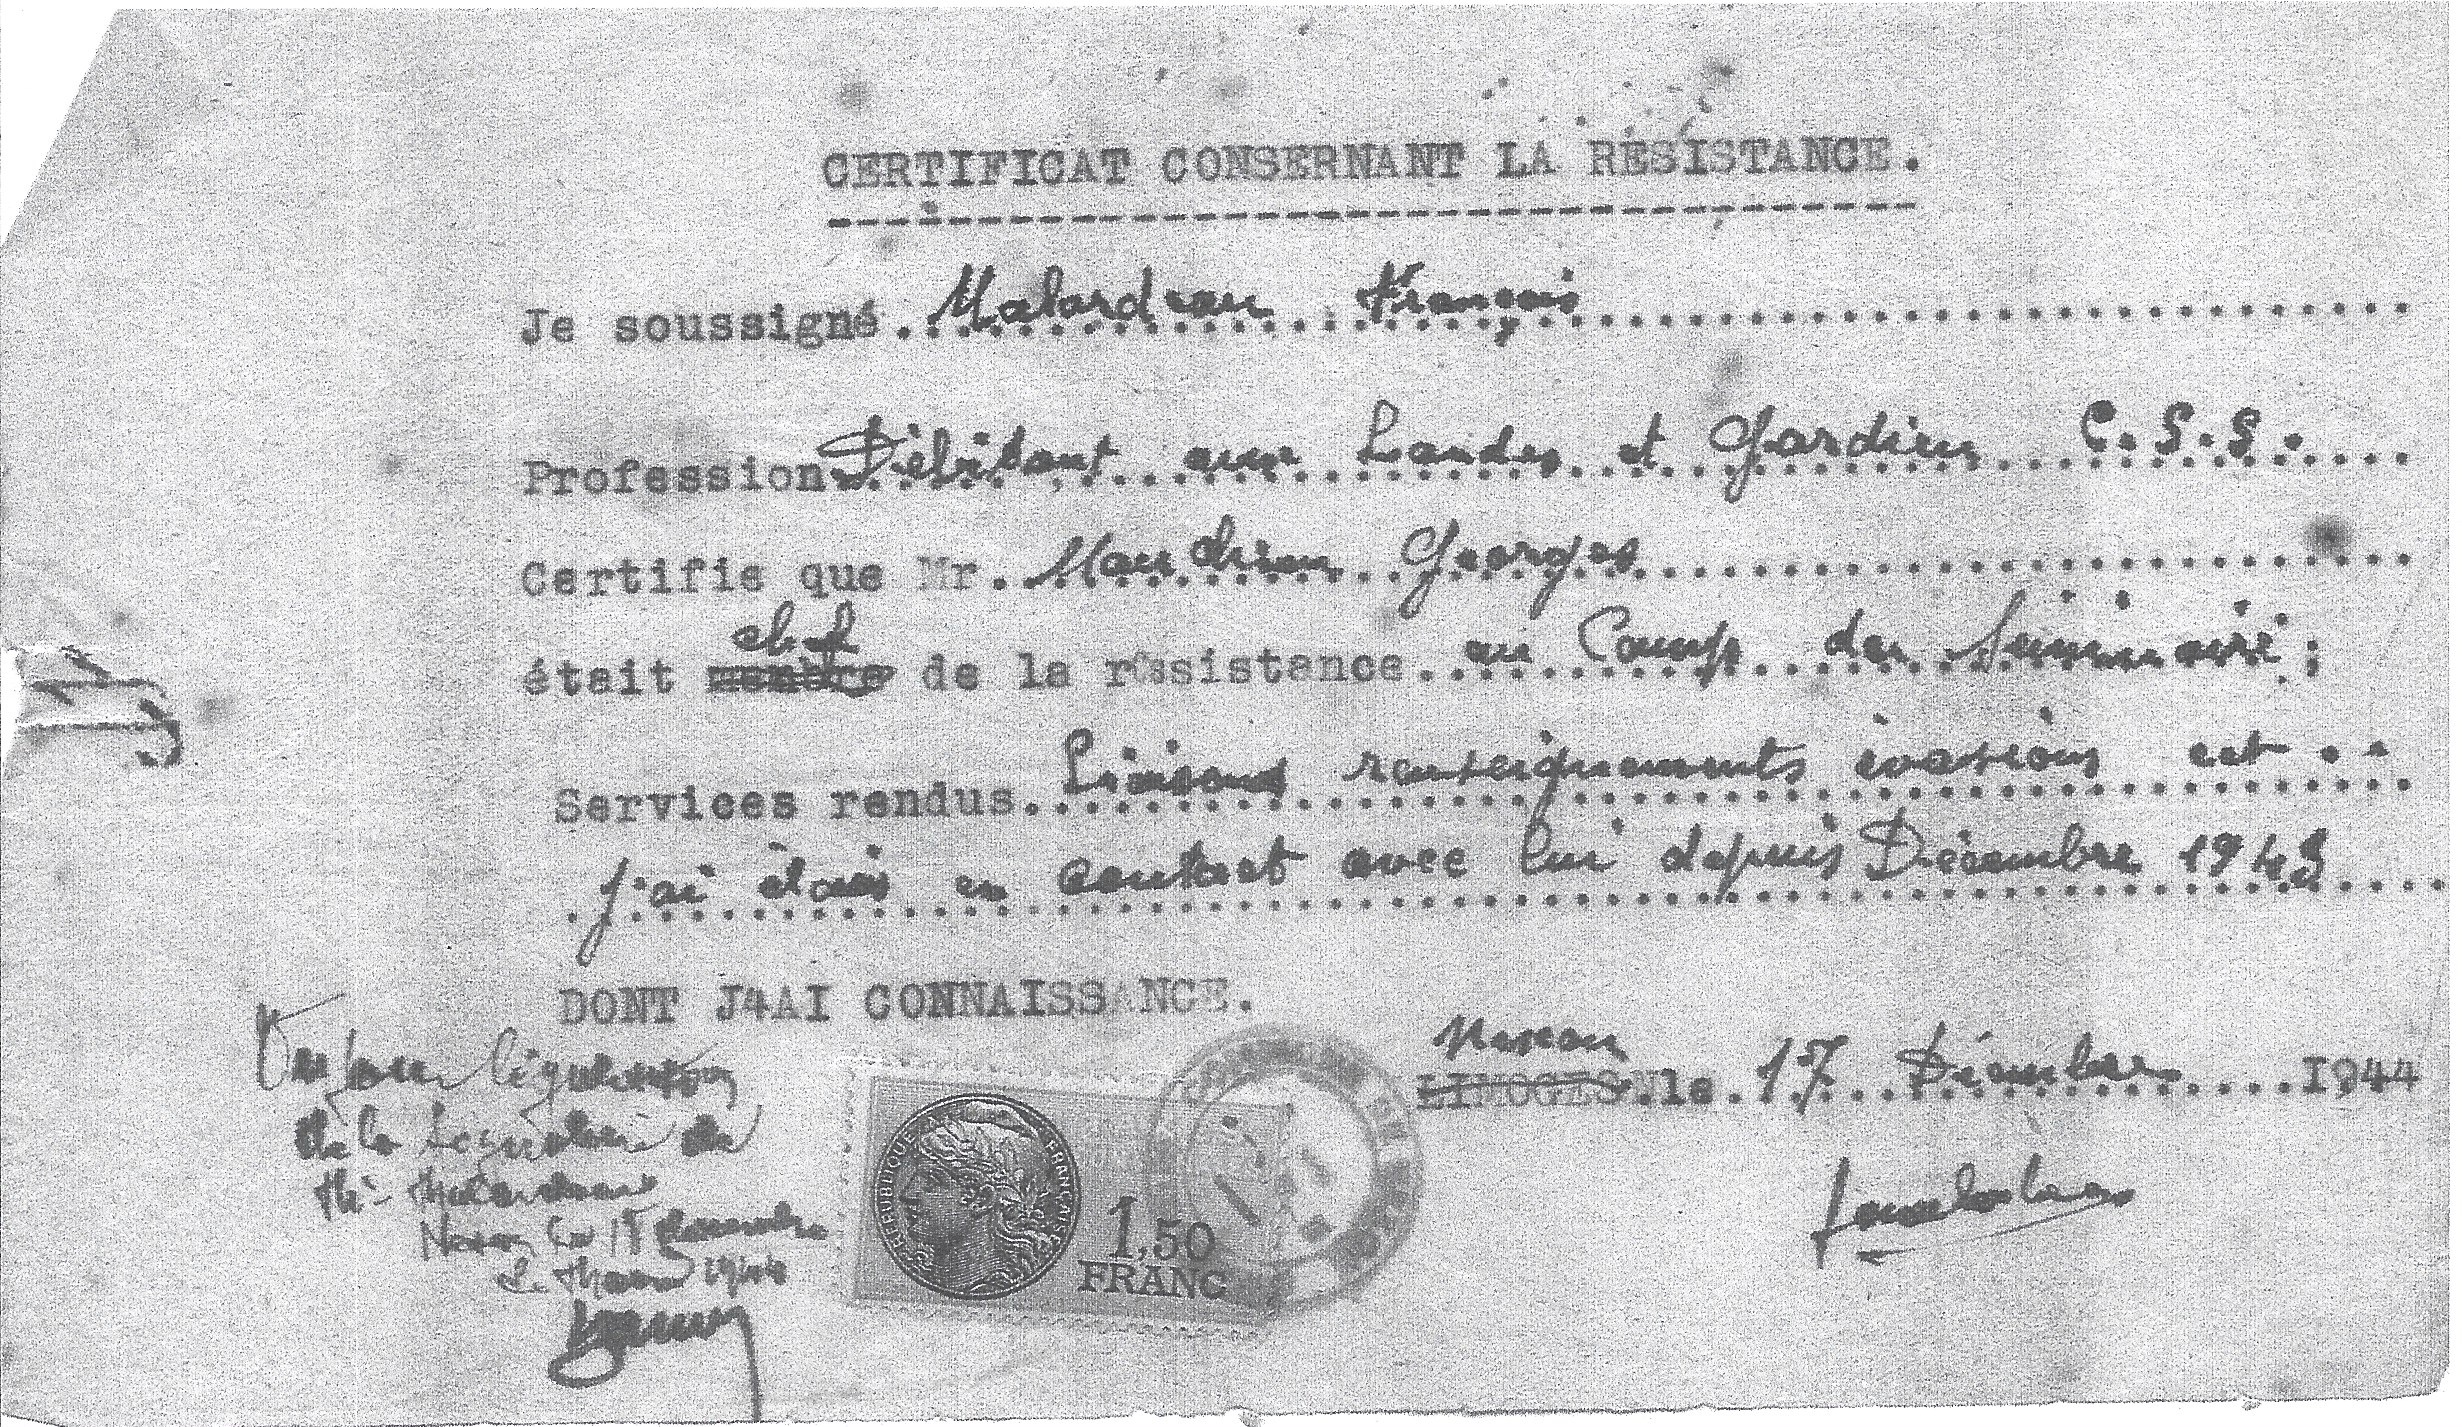 CERTIFICAT CONSERNANT LA RÉSISTANCE.
Je soussigné Malardeau François
Profession Débitant aux Landes et Gardien C.S.S.
Certifie que Mr. Georges
était chef de la réssistance au Camp du
Services rendus. Liaisons renseignements évasions ect..
j'ai étais en contact avec lui depuis Décembre 1943
DONT J4AI CONNAISSANCE.
LIMOGES le 17 Décembre 1944
Vu pour légalisation
de la signature de
Mr Malardeau
le Maire 1944
RÉPUBLIQUE FRANÇAISE
1,50
FRANC